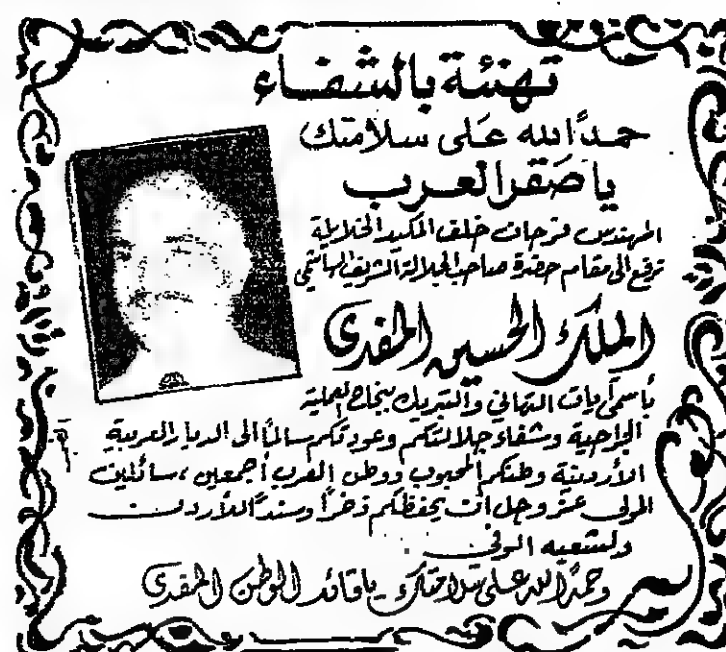 تهنئة بالشفاء
حمداً لله على سلامتك
يا صقر العرب
المهندس فرحات خلف المكيد الخلايلة
ترفع الى مقام حضرة صاحب الجلالة الشريف الهاشمي
الملك الحسين المفدى
بأسمى آيات التهاني والتبريك بنجاح العملية
الجراحية وشفاء جلالتكم وعودتكم سالماً الى الديار العربية
الأردنية وطنكم المحبوب ووطن العرب أجمعين ، سائلين
المولى عز وجل أن يحفظكم ذخراً وسنداً للأردن
ولشعبه الوفي
وحمداً لله على سلامتك .. يا قائد الوطن المفدى